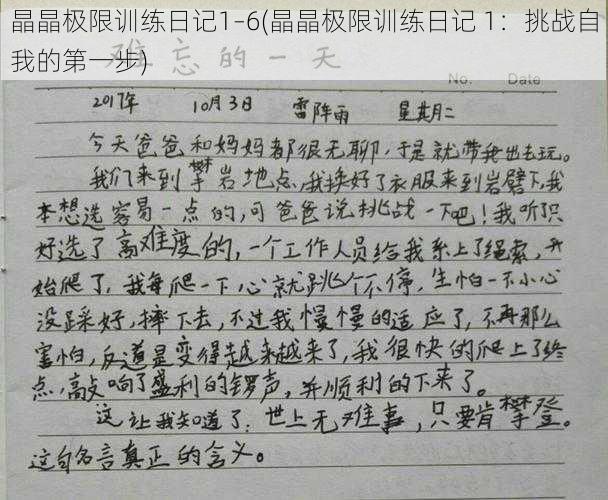 晶晶极限训练日记1–6(晶晶极限训练日记 1：挑战自
我的第一步)
难忘的一天
No. Date
2017年 10月3日 雷阵雨 星期二
今天爸爸和妈妈都很无聊，于是就带我出去玩。
我们来到攀岩地点，我换好了衣服来到岩臂下，我
本想选容易一点的，可爸爸说挑战一下吧！我听只
好选了高难度的，一个工作人员给我系上了绳索，开
始爬了，我每爬一下，心就跳个不停，生怕一不小心
没踩好，摔下去，不过我慢慢的适应了，不再那么
害怕，反道是变得越来越来了，我很快的爬上了终
点，敲响了盛利的锣声，并顺利的下来了。
这让我知道了，世上无难事，只要肯攀登。
这句名言真正的含义。